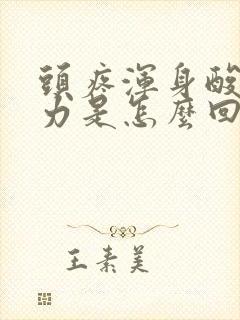 頭疼渾身酸
力是怎麼回
王素美